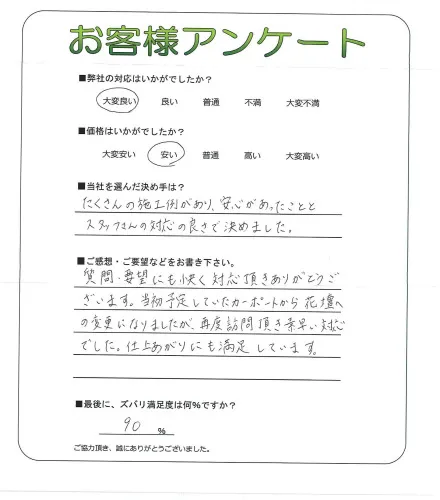 お客様アンケート
■弊社の対応はいかがでしたか？
大変良い 良い 普通 不満 大変不満
■価格はいかがでしたか？
大変安い 安い 普通 高い 大変高い
■当社を選んだ決め手は？
たくさんの施工例があり、安心があったことと
スタッフさんの対応の良さで決めました。
■ご感想・ご要望などをお書き下さい。
質問・要望にも快く対応頂きありがとうご
ざいます。当初予定していたカーポートから花壇へ
の変更になりましたが、再度訪問頂き素早い対応
でした。仕上がりにも満足しています。
■最後に、ズバリ満足度は何%ですか？
90 %
ご協力頂き、誠にありがとうございました。